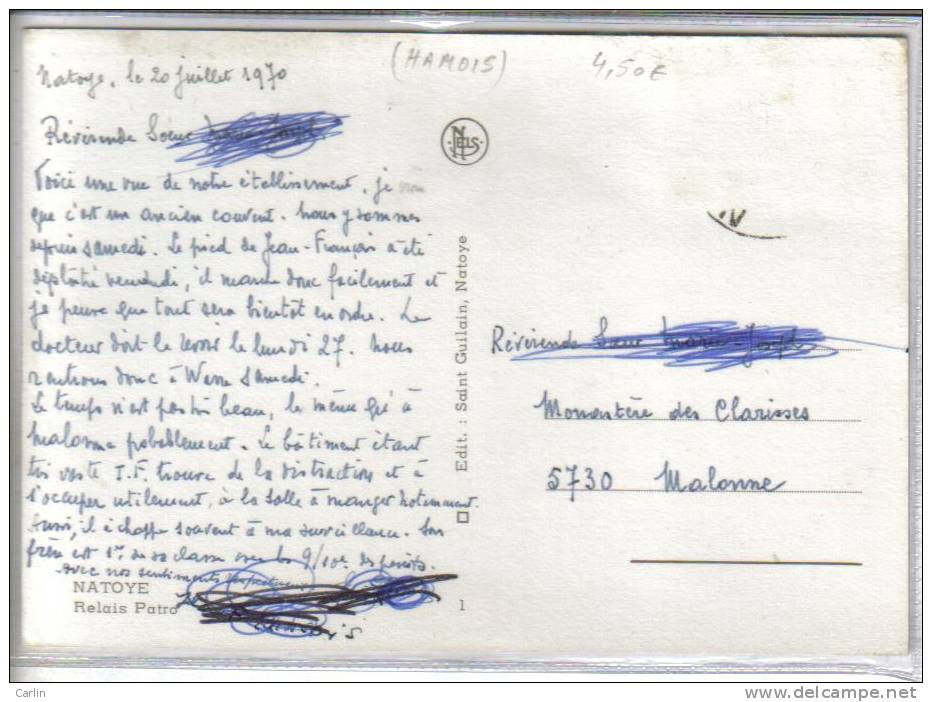 (HAMOIS)
4,50€
Natoye, le 20 juillet 1970
Révérende Soeur
NELS
Voici une vue de notre établissement, je
que c'est un ancien couvent. Nous y sommes
depuis samedi. Le pied de Jean-François a été
déplâtré vendredi, il marche donc facilement et
je pense que tout sera bientôt en ordre. Le
docteur doit le revoir le lundi 27. Nous
rentrons donc à samedi.
Le temps n'est pas très beau, le même qu'à
Malonne probablement. Le bâtiment étant
très vaste J.F. trouve de la distraction et à
s'occuper utilement, à la salle à manger notamment.
Aussi, il échappe souvent à ma surveillance. Son
frère est 1er de sa classe avec les 9/10e des points.
avec nos sentiments respectueux
NATOYE
Relais Patro
1
Edit. : Saint Guilain, Natoye
Révérende Soeur Marie-Joseph
Monastère des Clarisses
5730 Malonne
Carlin
www.delcampe.net